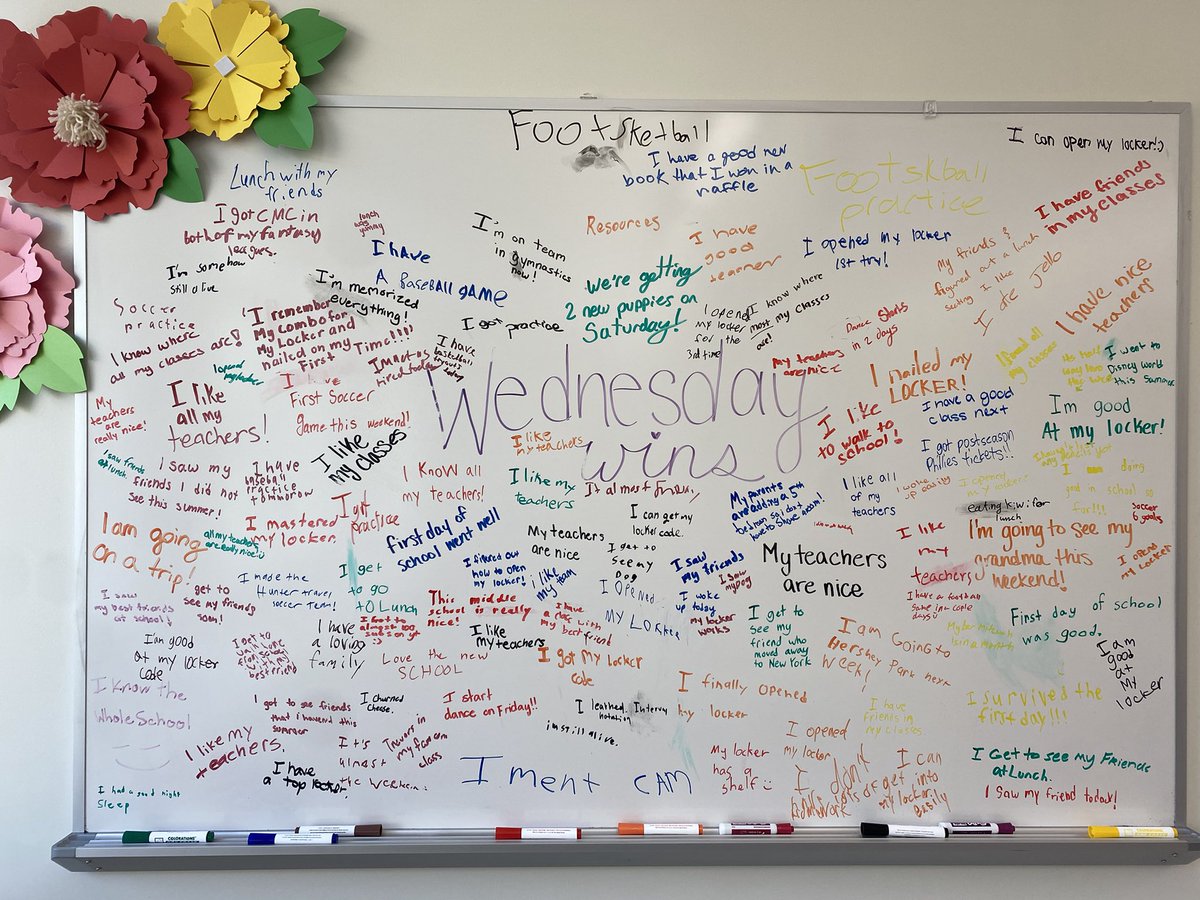 Footsketball
I can open my locker!:)
Lunch with my
friends
I have a good new
book that I won in a
raffle
Footskball
practice
I have friends
in my classes
I got CMC in
both of my fantasy
leagues.
lunch
was
yummy
I'm on team
in gymnastics
now!
Resources
I have
good
learners
I opened my locker
1st try!
My friends &
figured out a lunch
seating I like
I ate Jello
I'm somehow
still alive
I have
A BaseBall GAME
I'm memorized
everything!
We're getting
2 new puppies on
Saturday!
I know where
most my classes
are!
I opened
my locker
for the
3rd time
I have nice
teachers
Soccer
practice
I remember
My combo for
My Locker and
nailed on my
First Time!!!!
I got practice
Dance Starts
in 2 days
I know where
all my classes are!
I opened
my locker
I'm not as
tired today
I have
basketball
tryouts
today
My teachers
are nice
I nailed my
LOCKER!
I found all
my classes
I went to
Disney world
this Summer
I have
First Soccer
game this weekend!
Wednesday
wins
My
teachers
are
really nice!
I like
all my
teachers!
I like
my classes
I like
my teachers
I like
to walk to
school!
I have a good
class next
I'm good
At my locker!
I got postseason
Phillies tickets!!
I saw friends
at lunch
I saw my
friends I did not
see this summer!
I have
baseball
practice
tomorrow
I Know all
my teachers!
I like my
teachers
It almost friday
My parents
are adding a 5th
bedroom so I don't
have to share a room!
I like all
of my
teachers
I woke
up easily
I opened
my locker
I am doing
good in school so
far!!!
eating kiwi for
lunch
soccer
6 goals
I am going
on a trip!
all my teachers
are really nice:)
I mastered
my locker
I got
practice
first day of
school went well
I can get my
locker code.
My teachers
are nice
I get to
see my
Dog
I saw
my friends
I saw
my Dog
My teachers
are nice
I like
my
teachers
I'm going to see my
grandma this
weekend!
I opend
my locker
I filtered out
how to open
my locker!
I like
my team
I get
to go
to Lunch
I saw
my best friends
at school!
I get to
see my friends
soon!
I made the
Hunter travel
soccer team!
This middle
school is really
nice!
I have
class with
my best friend
I opened
My Locker
I woke
up today
my locker
works
I get to
see my
friend who
moved away
to New York
I have a football
game in a couple
days
First day of school
was good.
I'am good
at my locker
code
I get to
walk home
from school
with my
best friend
I have
a loving :)
family
I like
my teachers
Love the new
SCHOOL
I got my locker
code
I am Going to
Hershey Park next
Week!
I am
good
at
My
locker
I Know the
Whole School
I got to see friends
that I havend this
summer
I churned
cheese.
I start
dance on Friday!!
I leathed Interry
notation
im still alive.
I finally opened
my locker
I have
friends in
my classes
I survived the
first day!!!
I like my
teachers.
It's
almost
the weekend
I have
a top locker.
I ment CAM
My locker
has a
shelf :)
I opened
my locker
I can
get into
my locker
Easily
I Get to see my Friends
at Lunch.
I saw my friend today!
I had a good night
Sleep
COLORATIONS